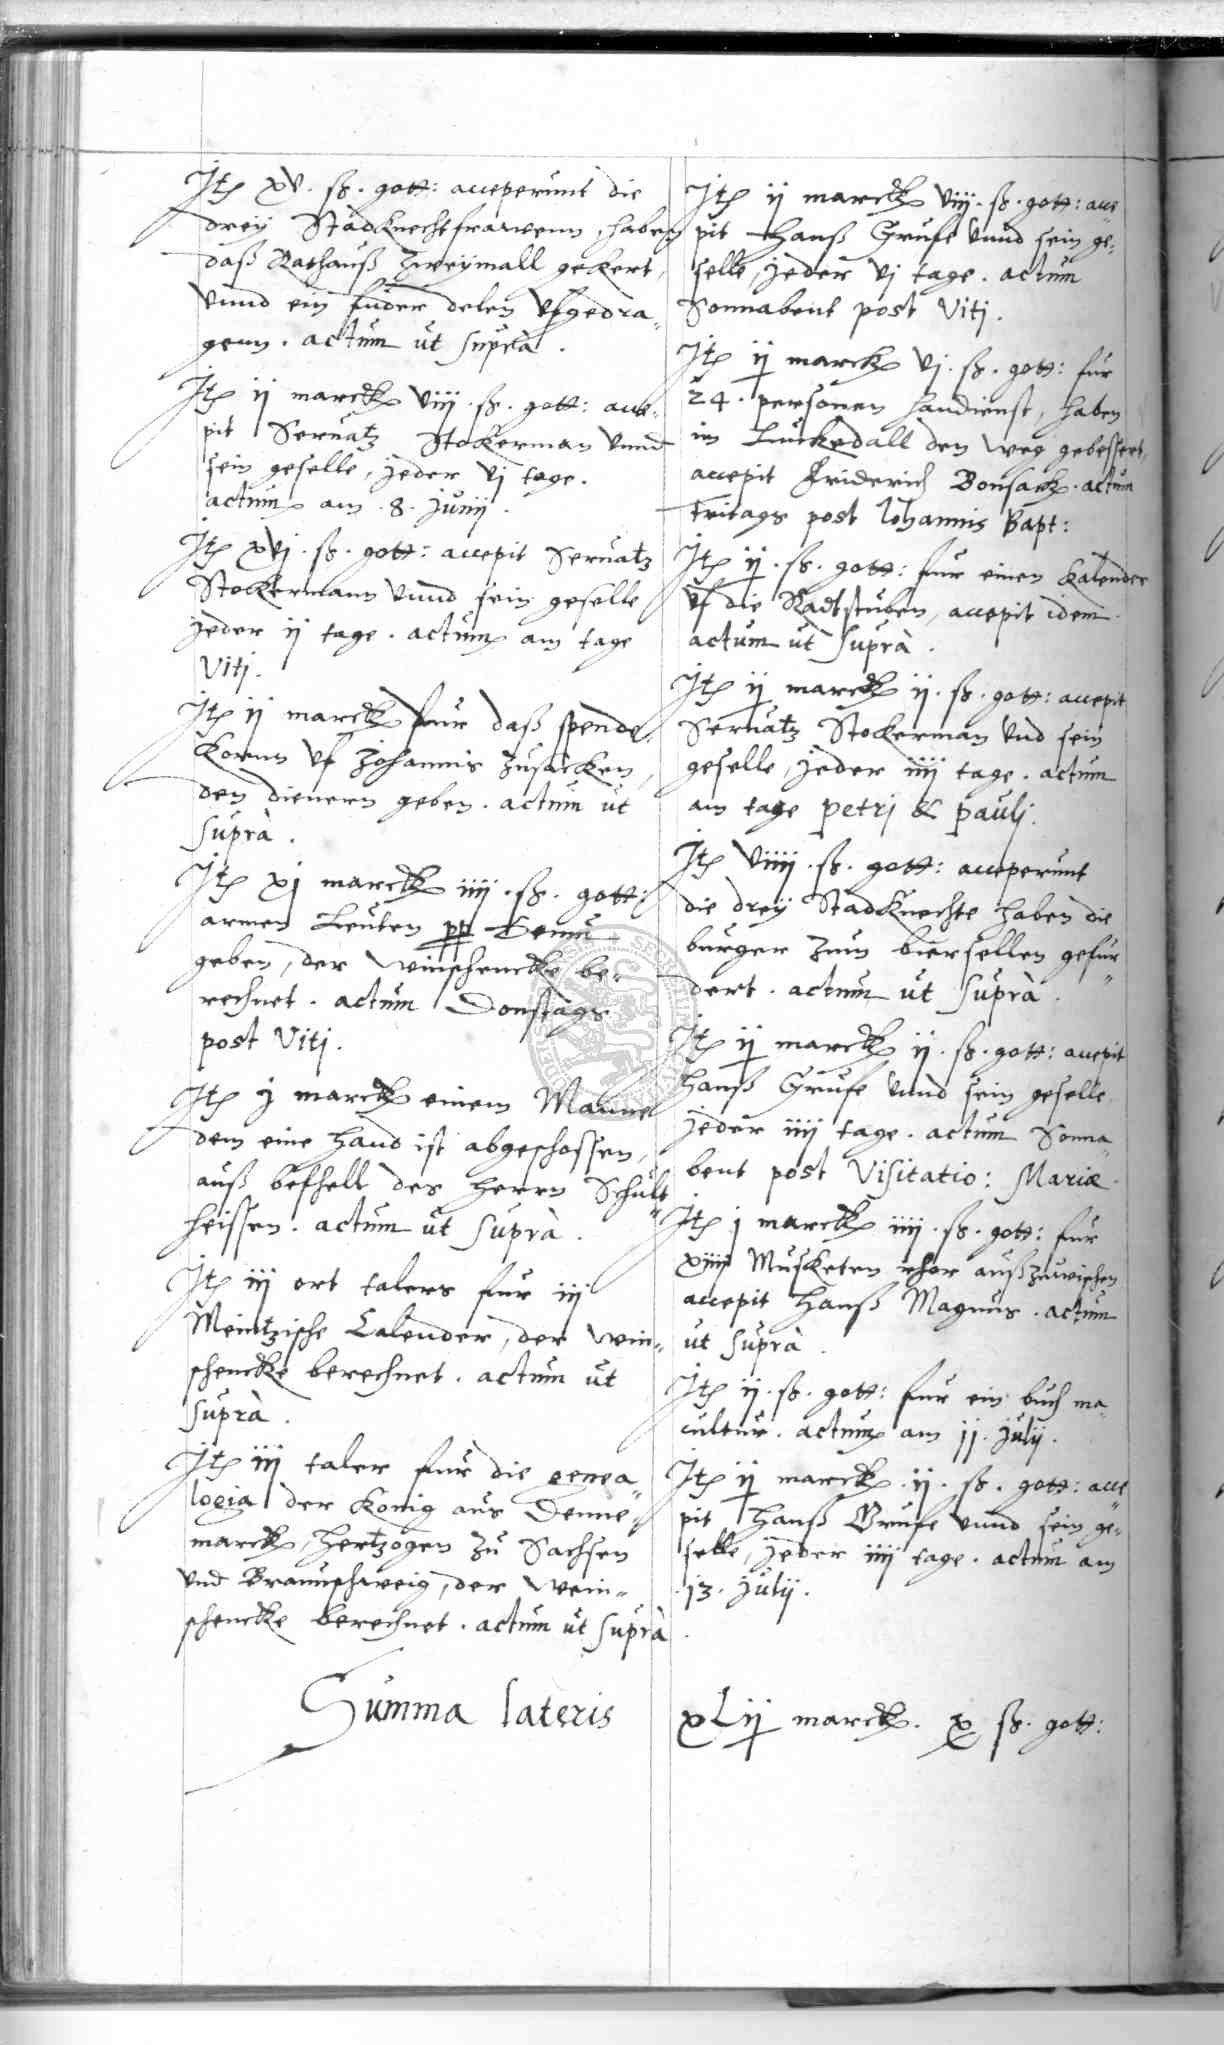 Jt) xv. ß. gott: acceperunt die
drey Stadknechtfrawenn, haben
daß Rathauß zweymall gekert,
vnnd ein fuder delen vfgedra„
genn. actum ut suprà.
Jt) ij marck viij. ß. gott: acce„
pit Seruatz Stockerman vnnd
sein geselle, jeder vj tage.
actum am .8. junij.
Jt) xvj. ß. gott: accepit Seruatz
Stockermann vnnd sein geselle
jeder ij tage. actum am tage
Viti.
Jt) ij marck fur daß spende„
Kornn vf Johannis zusacken,
den dienern geben. actum ut
suprà.
Jt) xj marck iiij. ß. gott:
armen Leuten pp
geben, der winschencke be„
rechnet. actum Donstags
post Viti.
Jt) j marck einem Manne
dem eine hand ist abgeschossen,
auß befhell des herrn Schult„
heissen. actum ut suprà.
Jt) iij ort talers fur iij
Meintzische Calender, der win„
schencke berechnet. actum ut
suprà.
Jt) iij taler fur die genea„
logia der Konig aus Denne„
marck, hertzogen zu Sachsen
vnd Braunschweig, der wein„
schencke berechnet. actum ut suprà.
Jt) ij marck viij. ß. gott: acce„
pit Hanß Grufe vnnd sein ge„
selle, jeder vj tage. actum
Sonnabent post Viti.
Jt) ij marck vj. ß. gott: fur
24. personen handienst, haben
im Luckedall den weg gebessert,
accepit Friderich Bonsack. actum
Fritags post Iohannis Bapt:
Jt) ij. ß. gott: fur einen Kalender
vf die Radtstuben, accepit idem.
actum ut suprà.
Jt) ij marck ij. ß. gott: accepit
Seruatz Stockerman vnd sein
geselle, jeder iiij tage. actum
am tage petri & pauli.
Jt) viiij. ß. gott: acceperunt
die drey Stadknechte haben die
burger zum biersellen gefur„
dert. actum ut suprà.
Jt) ij marck ij. ß. gott: accepit
Hanß Grufe vnnd sein geselle,
jeder iiij tage. actum Sonna„
bent post Visitatio: Mariæ.
Jt) j marck iiij. ß. gott: fur
xiiij Muscketen rhor außzuwischen
accepit Hanß Magnus. actum
ut suprà.
Jt) ij. ß. gott: fur ein buch ma„
cultur. actum am 11. julij.
Jt) ij marck ij. ß. gott: acce„
pit Hanß Grufe vnnd sein ge„
selle, jeder iiij tage. actum am
.13. julij.
Summa lateris xLij marck. x ß. gott: